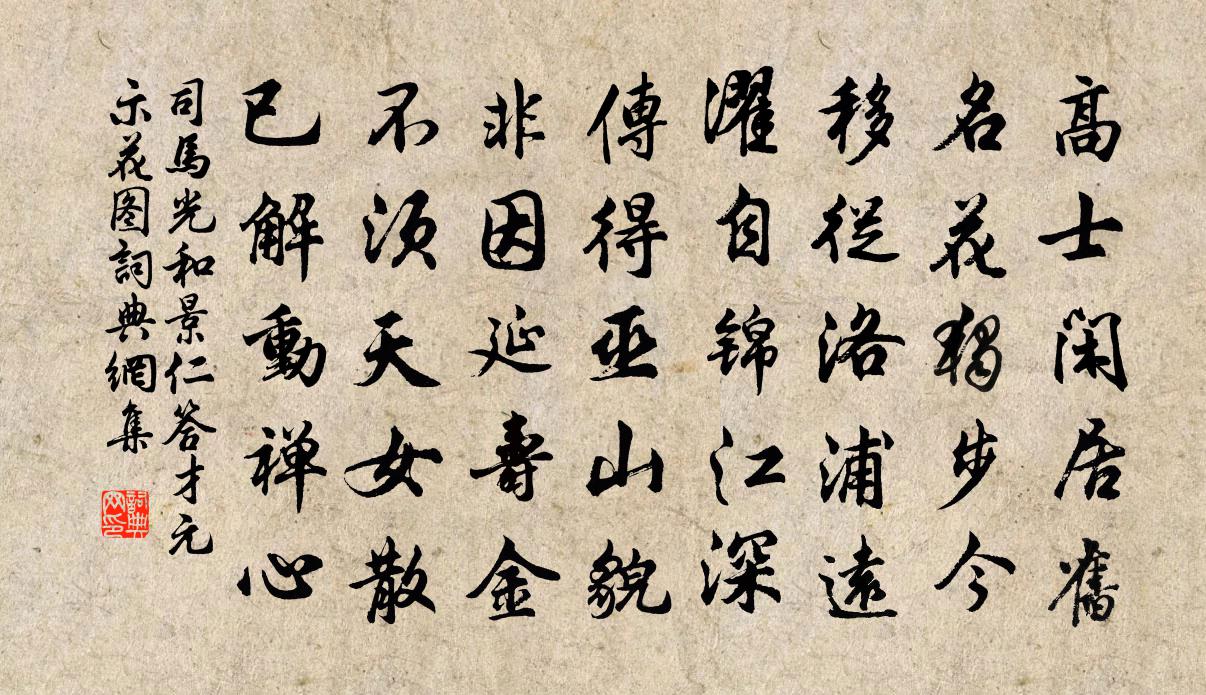 高士閑居舊
名花獨步今
移從洛浦遠
濯自锦江深
傳得巫山貌
非因延壽金
不須天女散
已解動禅心
司馬光和景仁答才元
示花图詞典網集
詞典
网印